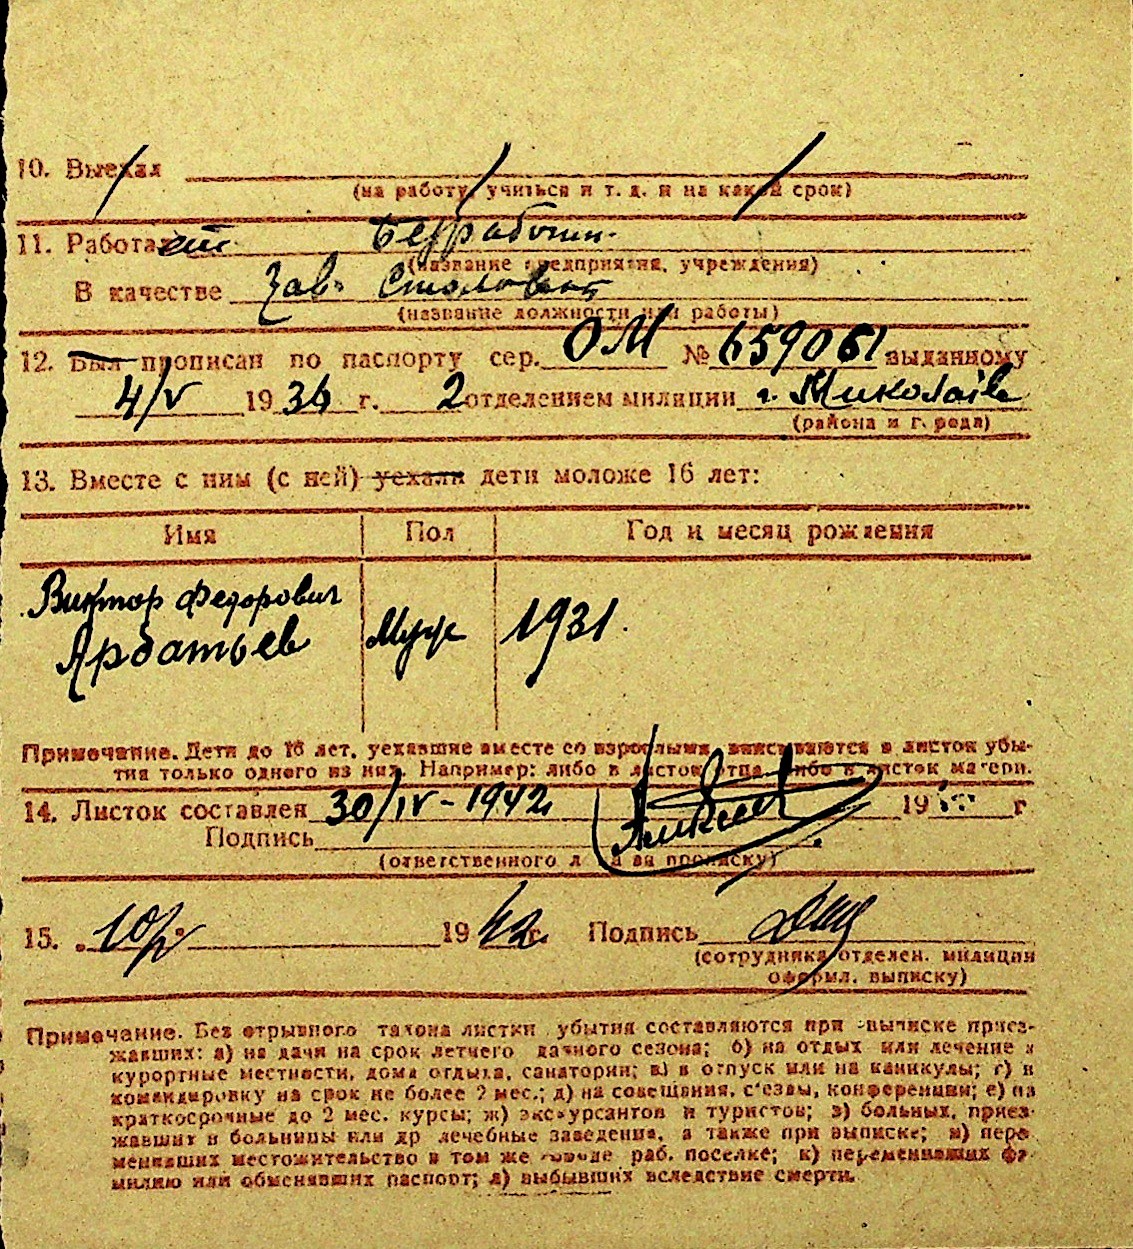 10. Выехал
(на работу, учиться и т. д. и на какой срок)
11. Работает
(название предприятия, учреждения)
В качестве Зав. Столовой
(название должности или работы)
12. Был прописан по паспорту сер. ОМ № 659061 выданному
4/V 1936 г. 2 отделением милиции г. Миколаїв
(района и города)
13. Вместе с ним (с ней) уехали дети моложе 16 лет:
Имя Пол Год и месяц рождения
Виктор Федорович
Арбатьев Муж 1931.
Примечание. Дети до 16 лет, уехавшие вместе со взрослыми, вписываются в листок убы-
тия только одного из них. Например: либо в листок отца либо в листок матери.
14. Листок составлен 30/IV-1942 19 г
Подпись
(ответственного за прописку)
15. 1942 г. Подпись
(сотрудника отделен. милиции
оформл. выписку)
Примечание. Без отрывного талона листки убытия составляются при выписке приез-
жавших: а) на дачи на срок летнего дачного сезона; б) на отдых или лечение в
курортные местности, дома отдыха, санатории; в) в отпуск или на каникулы; г) в
командировку на срок не более 2 мес.; д) на совещания, с'езды, конференции; е) на
краткосрочные до 2 мес. курсы; ж) экскурсантов и туристов; з) больных, приез-
жавших в больницы или др лечебные заведения, а также при выписке; и) пере
менивших местожительство в том же городе раб. поселке; к) переменивших фа-
милию или обменявших паспорт; л) выбывших вследствие смерти.